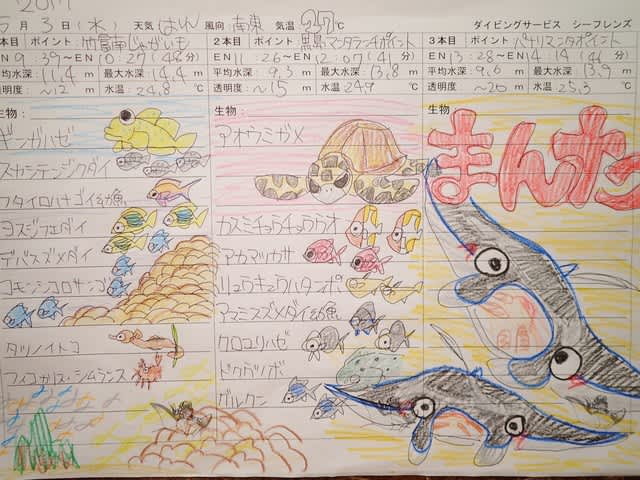 2017
5月 3日(水) 天気 はれ 風向 南東 気温 27℃
ダイビングサービス シーフレンズ
本目 ポイント 竹富南じゃがいも
EN 9:39〜EN 10:27 (48分)
平均水深: 11.4m 最大水深 14.4m
透明度 〜12m 水温 24.8℃
生物:
ギンガハゼ
スカシテンジクダイ
フタイロハナゴイ幼魚
ヨスジフエダイ
デバスズメダイ
コモンシコロサンゴ
タツノイトコ
フィコカリス・シムランス
2本目 ポイント 黒島マンタランチポイント
EN 11:26〜EN 12:07 (41分)
平均水深: 9.3m 最大水深 13.8m
透明度 〜15m 水温 24.9℃
生物:
アオウミガメ
カスミチョウチョウウオ
アカマツカサ
リュウキュウハタンポ
アマミスズメダイ幼魚
クロユリハゼ
ドクウツボ
グルクン
3本目 ポイント パナリマンタポイント
EN 13:28〜EN 14:14 (46分)
平均水深: 9.6m 最大水深 13.9m
透明度 〜20m 水温 25.3℃
生物
まんたっ